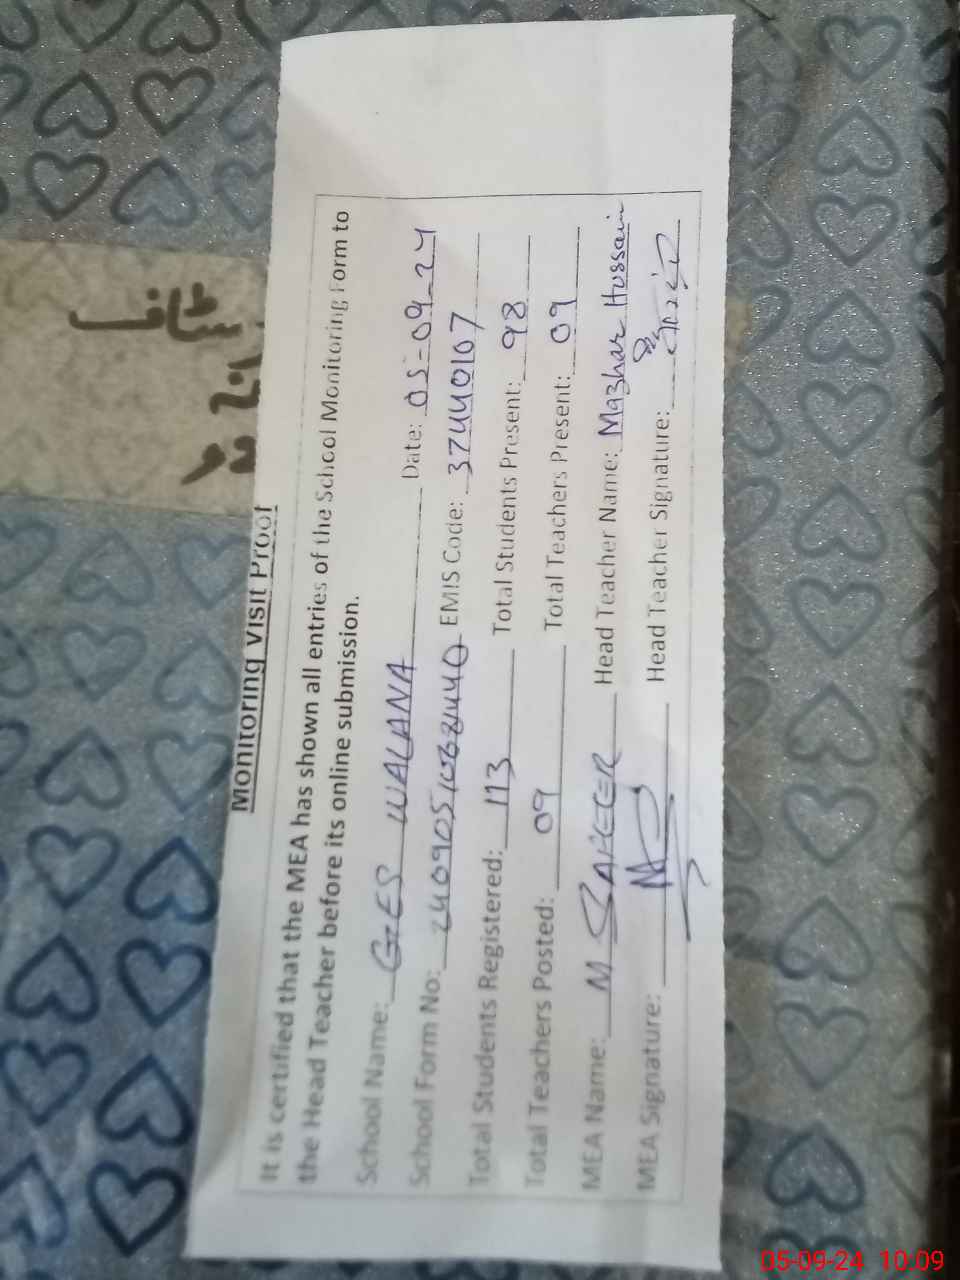 Monitoring Visit Proof
It is certified that the MEA has shown all entries of the School Monitoring Form to
the Head Teacher before its online submission.
School Name: GES WALANA Date: 05-09-24
School Form No: EMIS Code: 37440107
Total Students Registered: 113 Total Students Present: 98
Total Teachers Posted: 09 Total Teachers Present: 09
MEA Name: M SAFEER Head Teacher Name: Mazhar Hussain
MEA Signature: Head Teacher Signature:
سٹاف
05-09-24 10:09